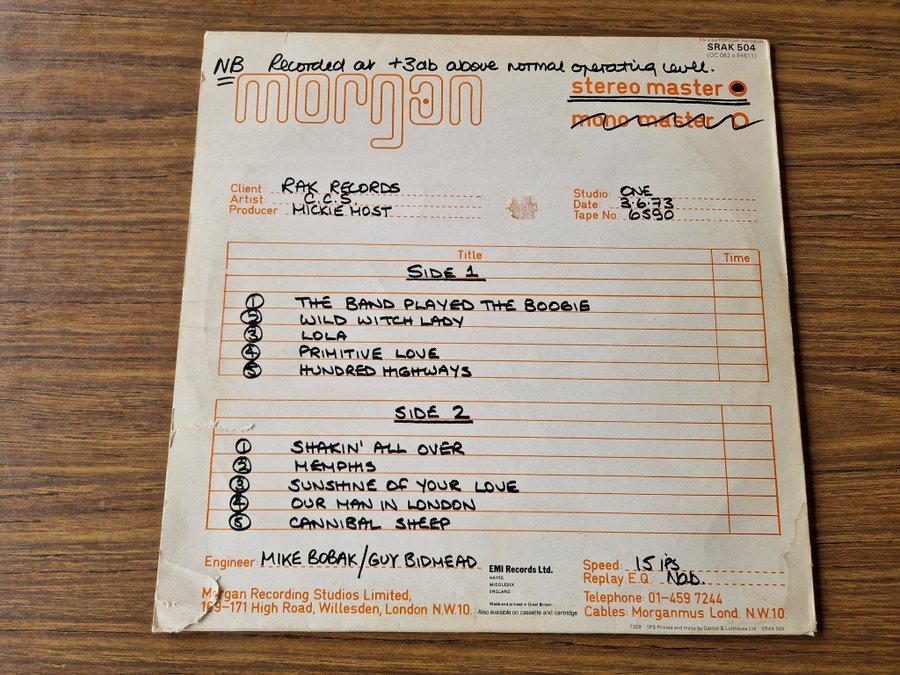 SRAK 504
(OC 062 o 94511)
NB Recorded at +3db above normal operating level.
morgan
stereo master
mono master
Client: RAK RECORDS
Artist C.C.S.
Producer MICKIE MOST
Studio: ONE
Date: 3.6.73
Tape No. 6590
Title Time
SIDE 1
1 THE BAND PLAYED THE BOOGIE
2 WILD WITCH LADY
3 LOLA
4 PRIMITIVE LOVE
5 HUNDRED HIGHWAYS
SIDE 2
1 SHAKIN' ALL OVER
2 MEMPHIS
3 SUNSHINE OF YOUR LOVE
4 OUR MAN IN LONDON
5 CANNIBAL SHEEP
Engineer: MIKE BOBAK/GUY BIDMEAD
Speed: 15 ips
Replay E.Q. NAB.
EMI Records Ltd.
HAYES
MIDDLESEX
ENGLAND
Made and printed in Great Britain.
Also available on cassette and cartridge
Morgan Recording Studios Limited,
169-171 High Road, Willesden, London N.W.10.
Telephone: 01-459 7244
Cables: Morganmus Lond. N.W.10.
7309 TPS Printed and made by Garrod & Lofthouse Ltd. SRAK 504